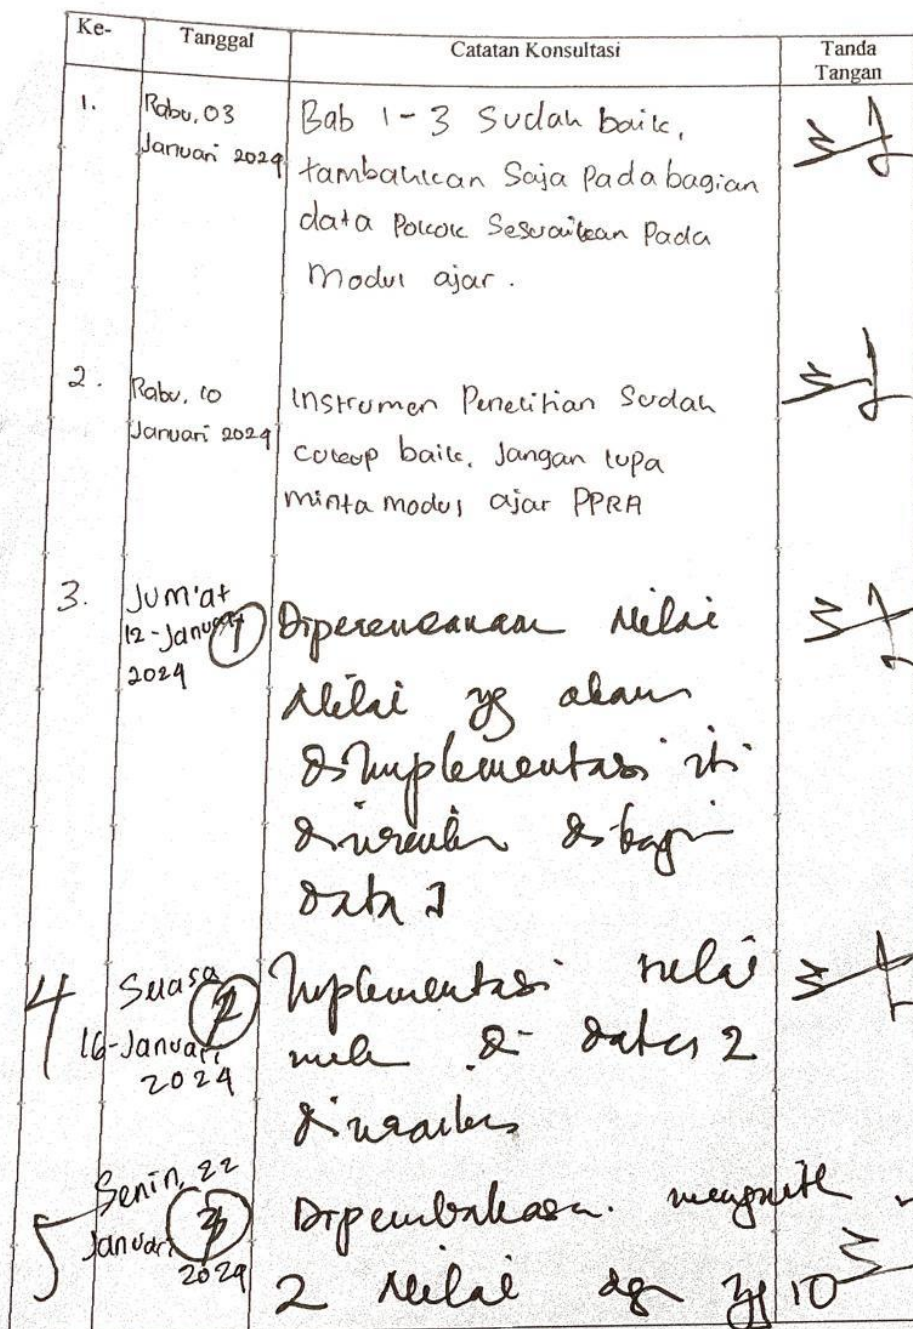 Ke-
Tanggal
Catatan Konsultasi
Tanda
Tangan
1.
Rabu, 03
Januari 2024
Bab 1-3 Sudah baik,
tambahkan Saja Pada bagian
data Pokok Sesuaikan Pada
Modul ajar.
2.
Rabu, 10
Januari 2024
Instrumen Penelitian Sudah
cukup baik, Jangan lupa
minta modul ajar PPRA
3.
Jum'at
12-Januari
2024
1
Diperencanaan Nilai
Nilai yg akan
diimplementasi
di bagi
data 1
4
16-Januari
2024
2
Implementasi nilai
di data 2
5
Senin, 22
Januari
2024
2 Nilai dg yg 10